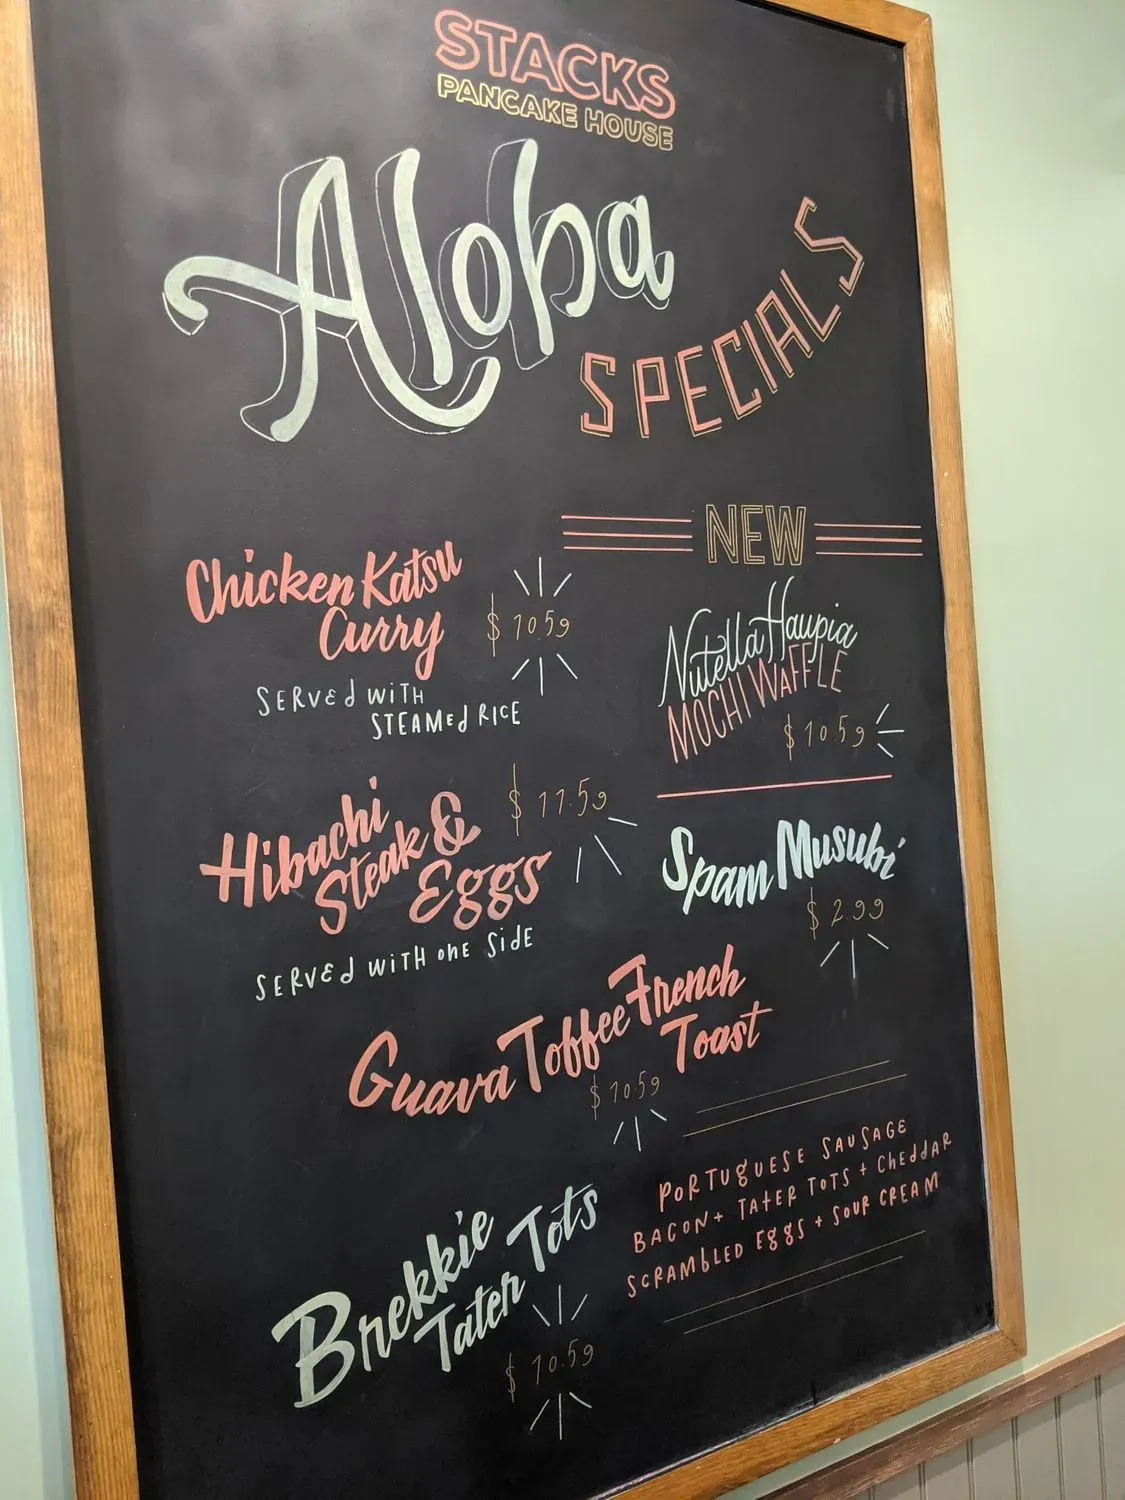 STACKS
PANCAKE HOUSE
Aloha
SPECIALS
Chicken Katsu
Curry
$10.59
SERVED WITH
STEAMED RICE
NEW
Nutella Haupia
MOCHI WAFFLE
$10.59
Hibachi
Steak &
Eggs
$11.59
SERVED WITH ONE SIDE
Spam Musubi
$2.99
Guava Toffee French
Toast
$10.59
Brekkie
Tater Tots
$10.59
PORTUGUESE SAUSAGE
BACON + TATER TOTS + CHEDDAR
SCRAMBLED EGGS + SOUR CREAM